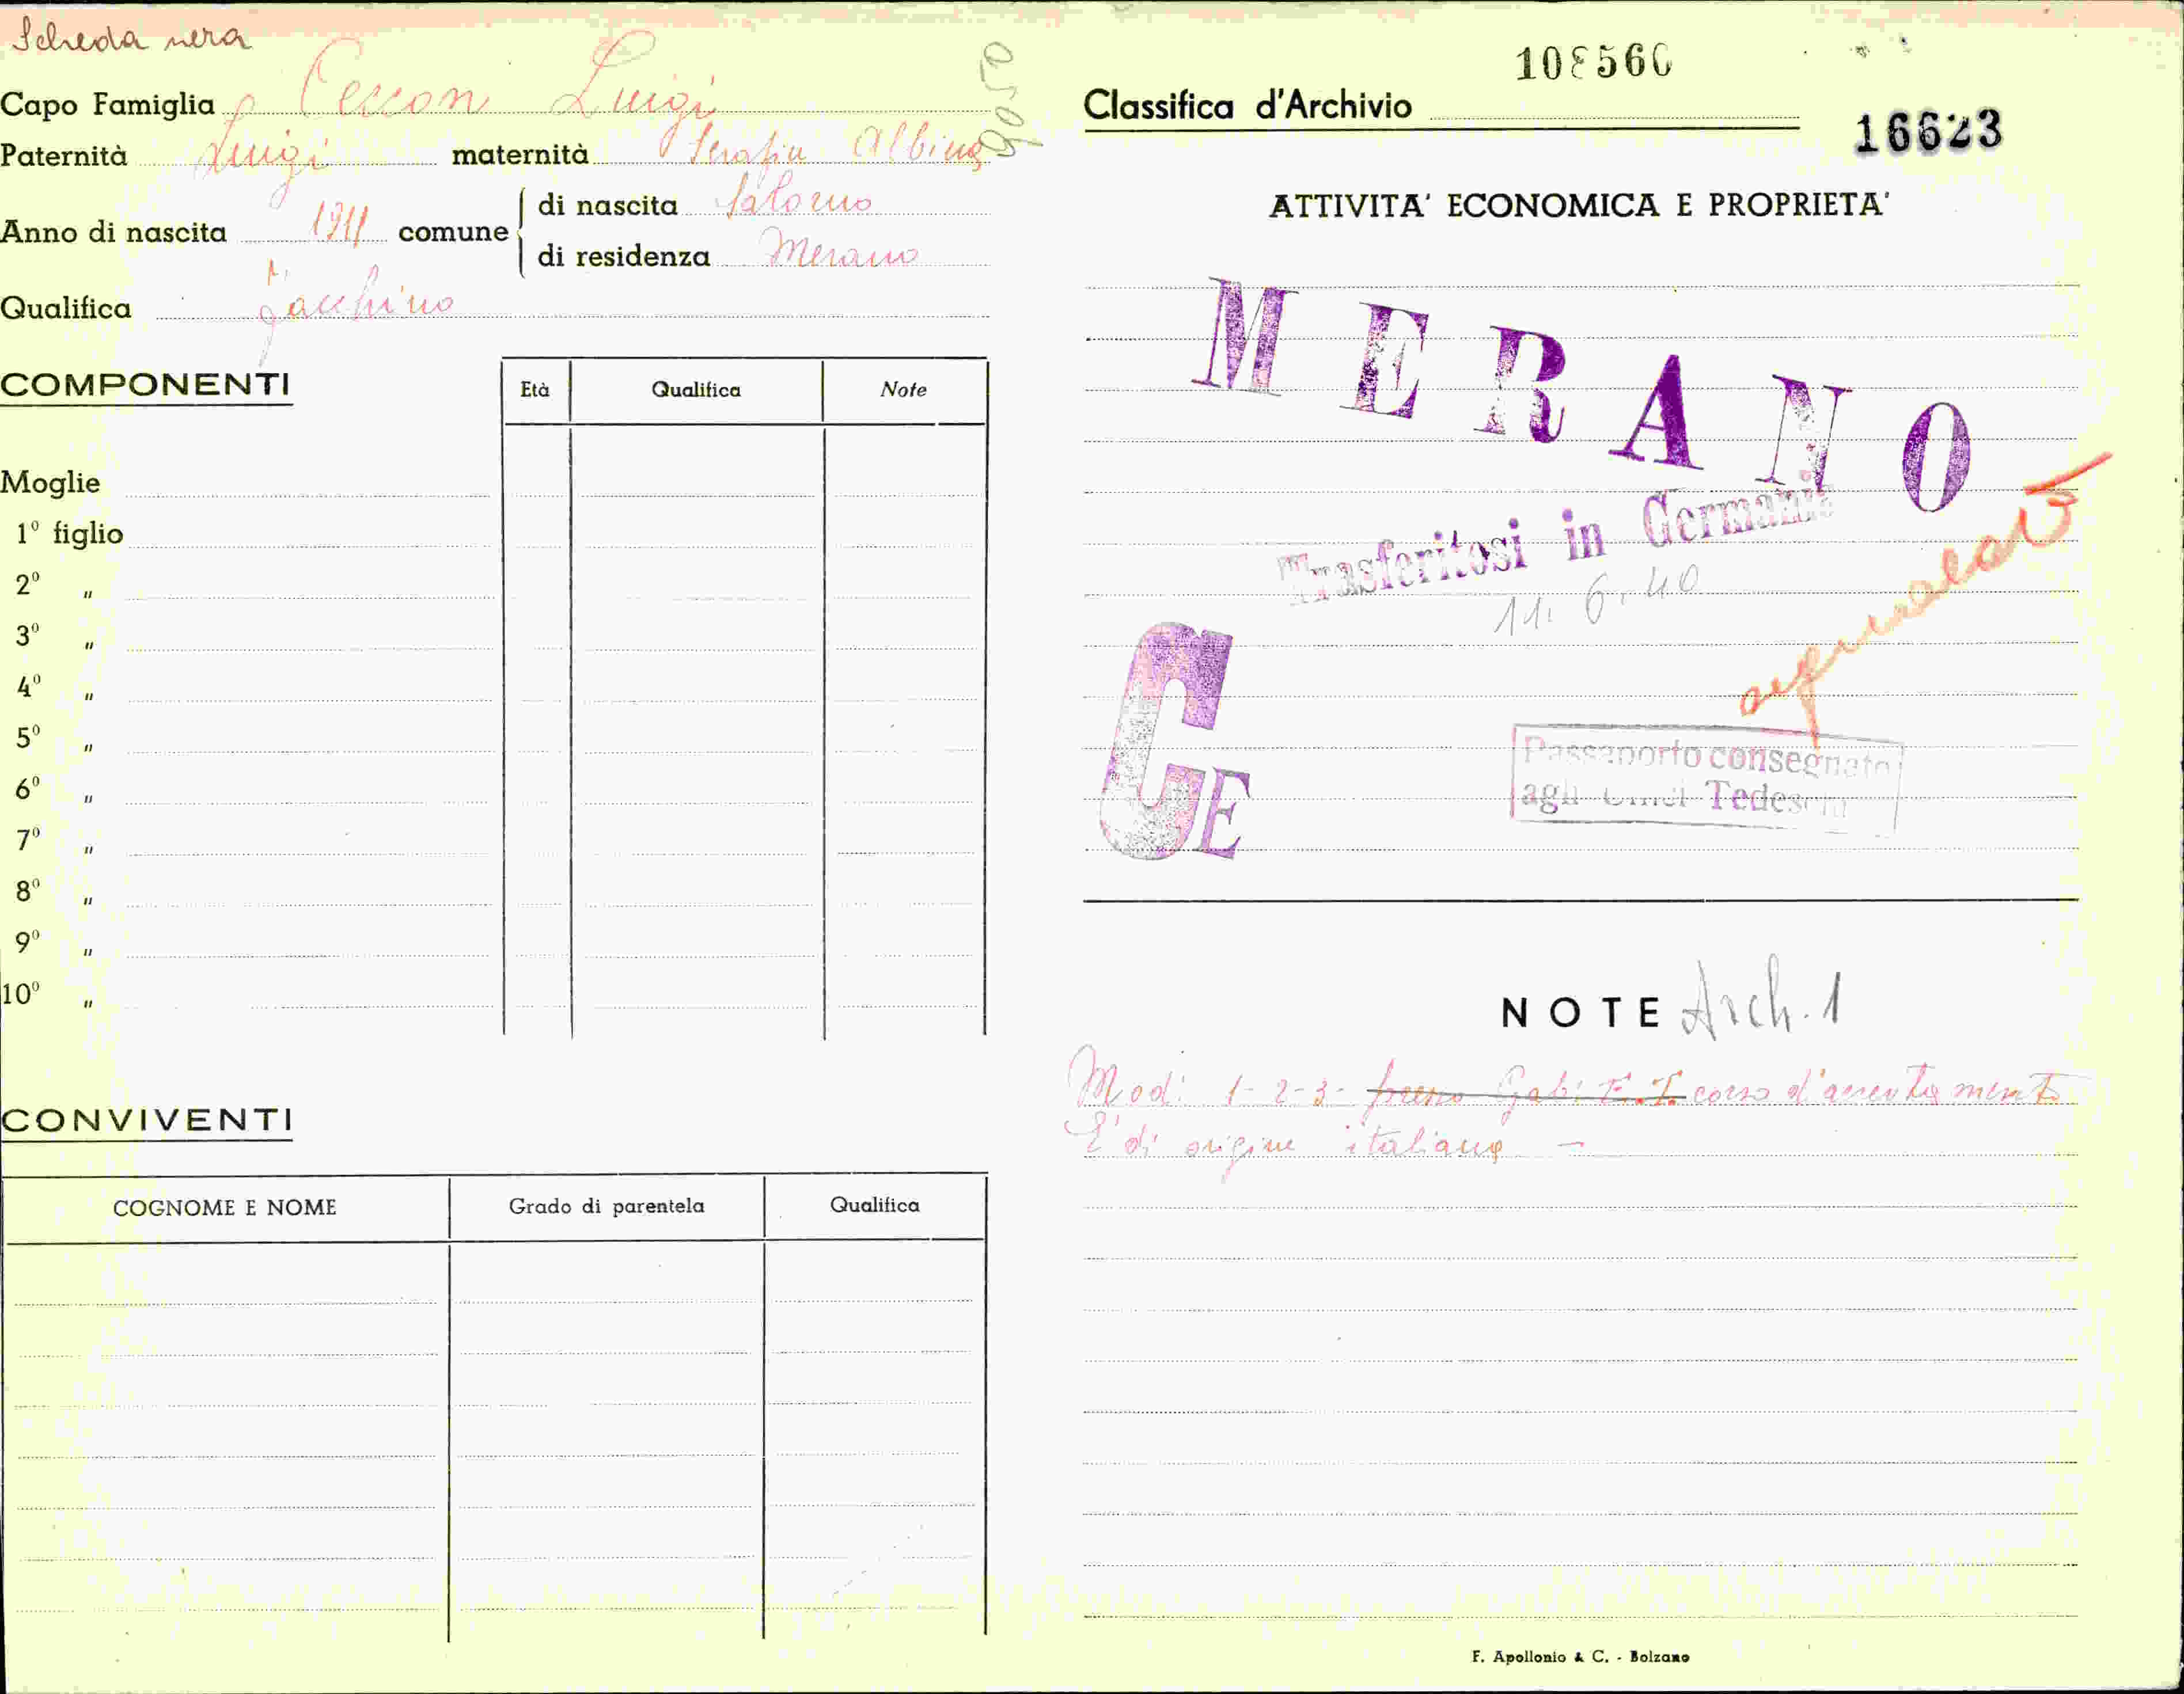 Scheda nera
Capo Famiglia Ceccon Luigi
Paternità Luigi maternità Serafin Albina
Anno di nascita 1911 comune di nascita Salorno
di residenza Merano
Qualifica facchino
COMPONENTI
Età Qualifica Note
Moglie
1º figlio
2º "
3º "
4º "
5º "
6º "
7º "
8º "
9º "
10º "
CONVIVENTI
COGNOME E NOME Grado di parentela Qualifica
Classifica d'Archivio 108560
16623
ATTIVITA' ECONOMICA E PROPRIETA'
MERANO
Trasferitosi in Germania
11. 6. 40
CE
Passaporto consegnato
agli Uffici Tedeschi
NOTE Arch. 1
Mod: 1-2-3- corso d'accertamento
E' di origine italiana -
F. Apollonio & C. - Bolzano